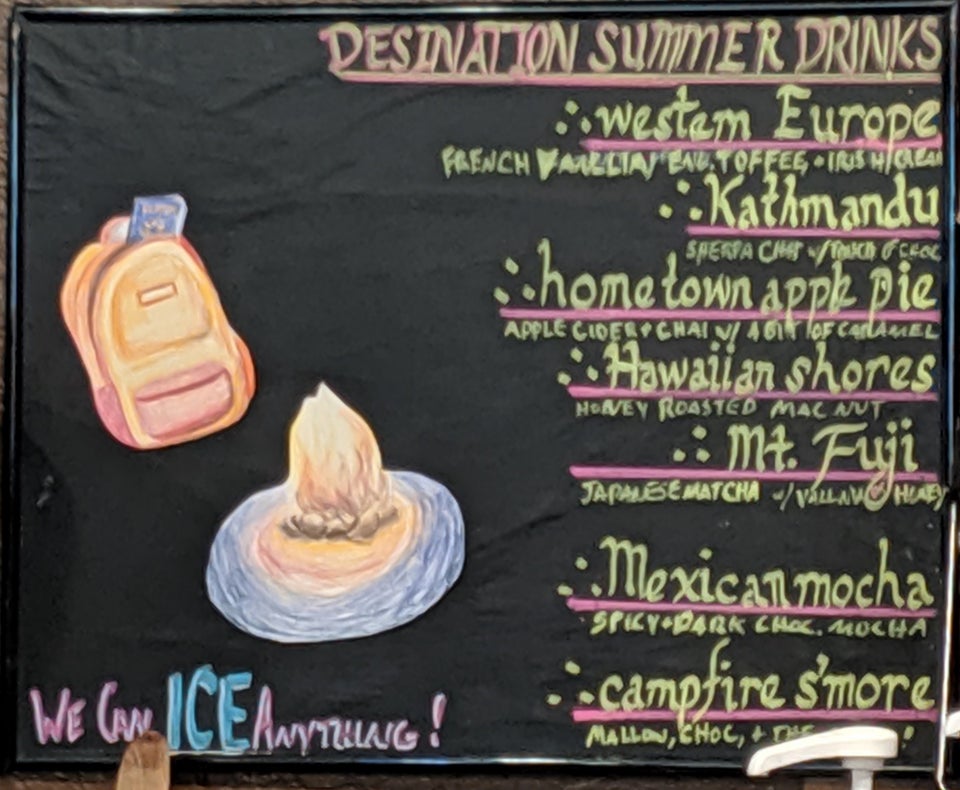 DESINATION SUMMER DRINKS
western Europe
FRENCH VANILLIA, ENG. TOFFEE, + IRISH CREAM
Kathmandu
SHERPA CHAI W/ TOUCH O' CHOC
hometown apple pie
APPLE CIDER + CHAI W/ A BIT OF CARAMEL
Hawaiian shores
HONEY ROASTED MAC NUT
Mt. Fuji
JAPANESE MATCHA W/ HONEY
Mexican mocha
SPICY + DARK CHOC. MOCHA
campfire s'more
MALLOW, CHOC, + THE
WE CAN ICE ANYTHING!